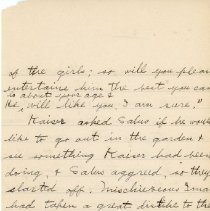 of the girls; so will you please
entertains him the best you can
is about your age &
He will like you, I am sure."
Kaiser asked Salus if he would
like to go out in the garden &
see something Kaiser had been
doing, & Salus aggreed, so they
started off. Mischieveous Ina
had taken a great dislike to the